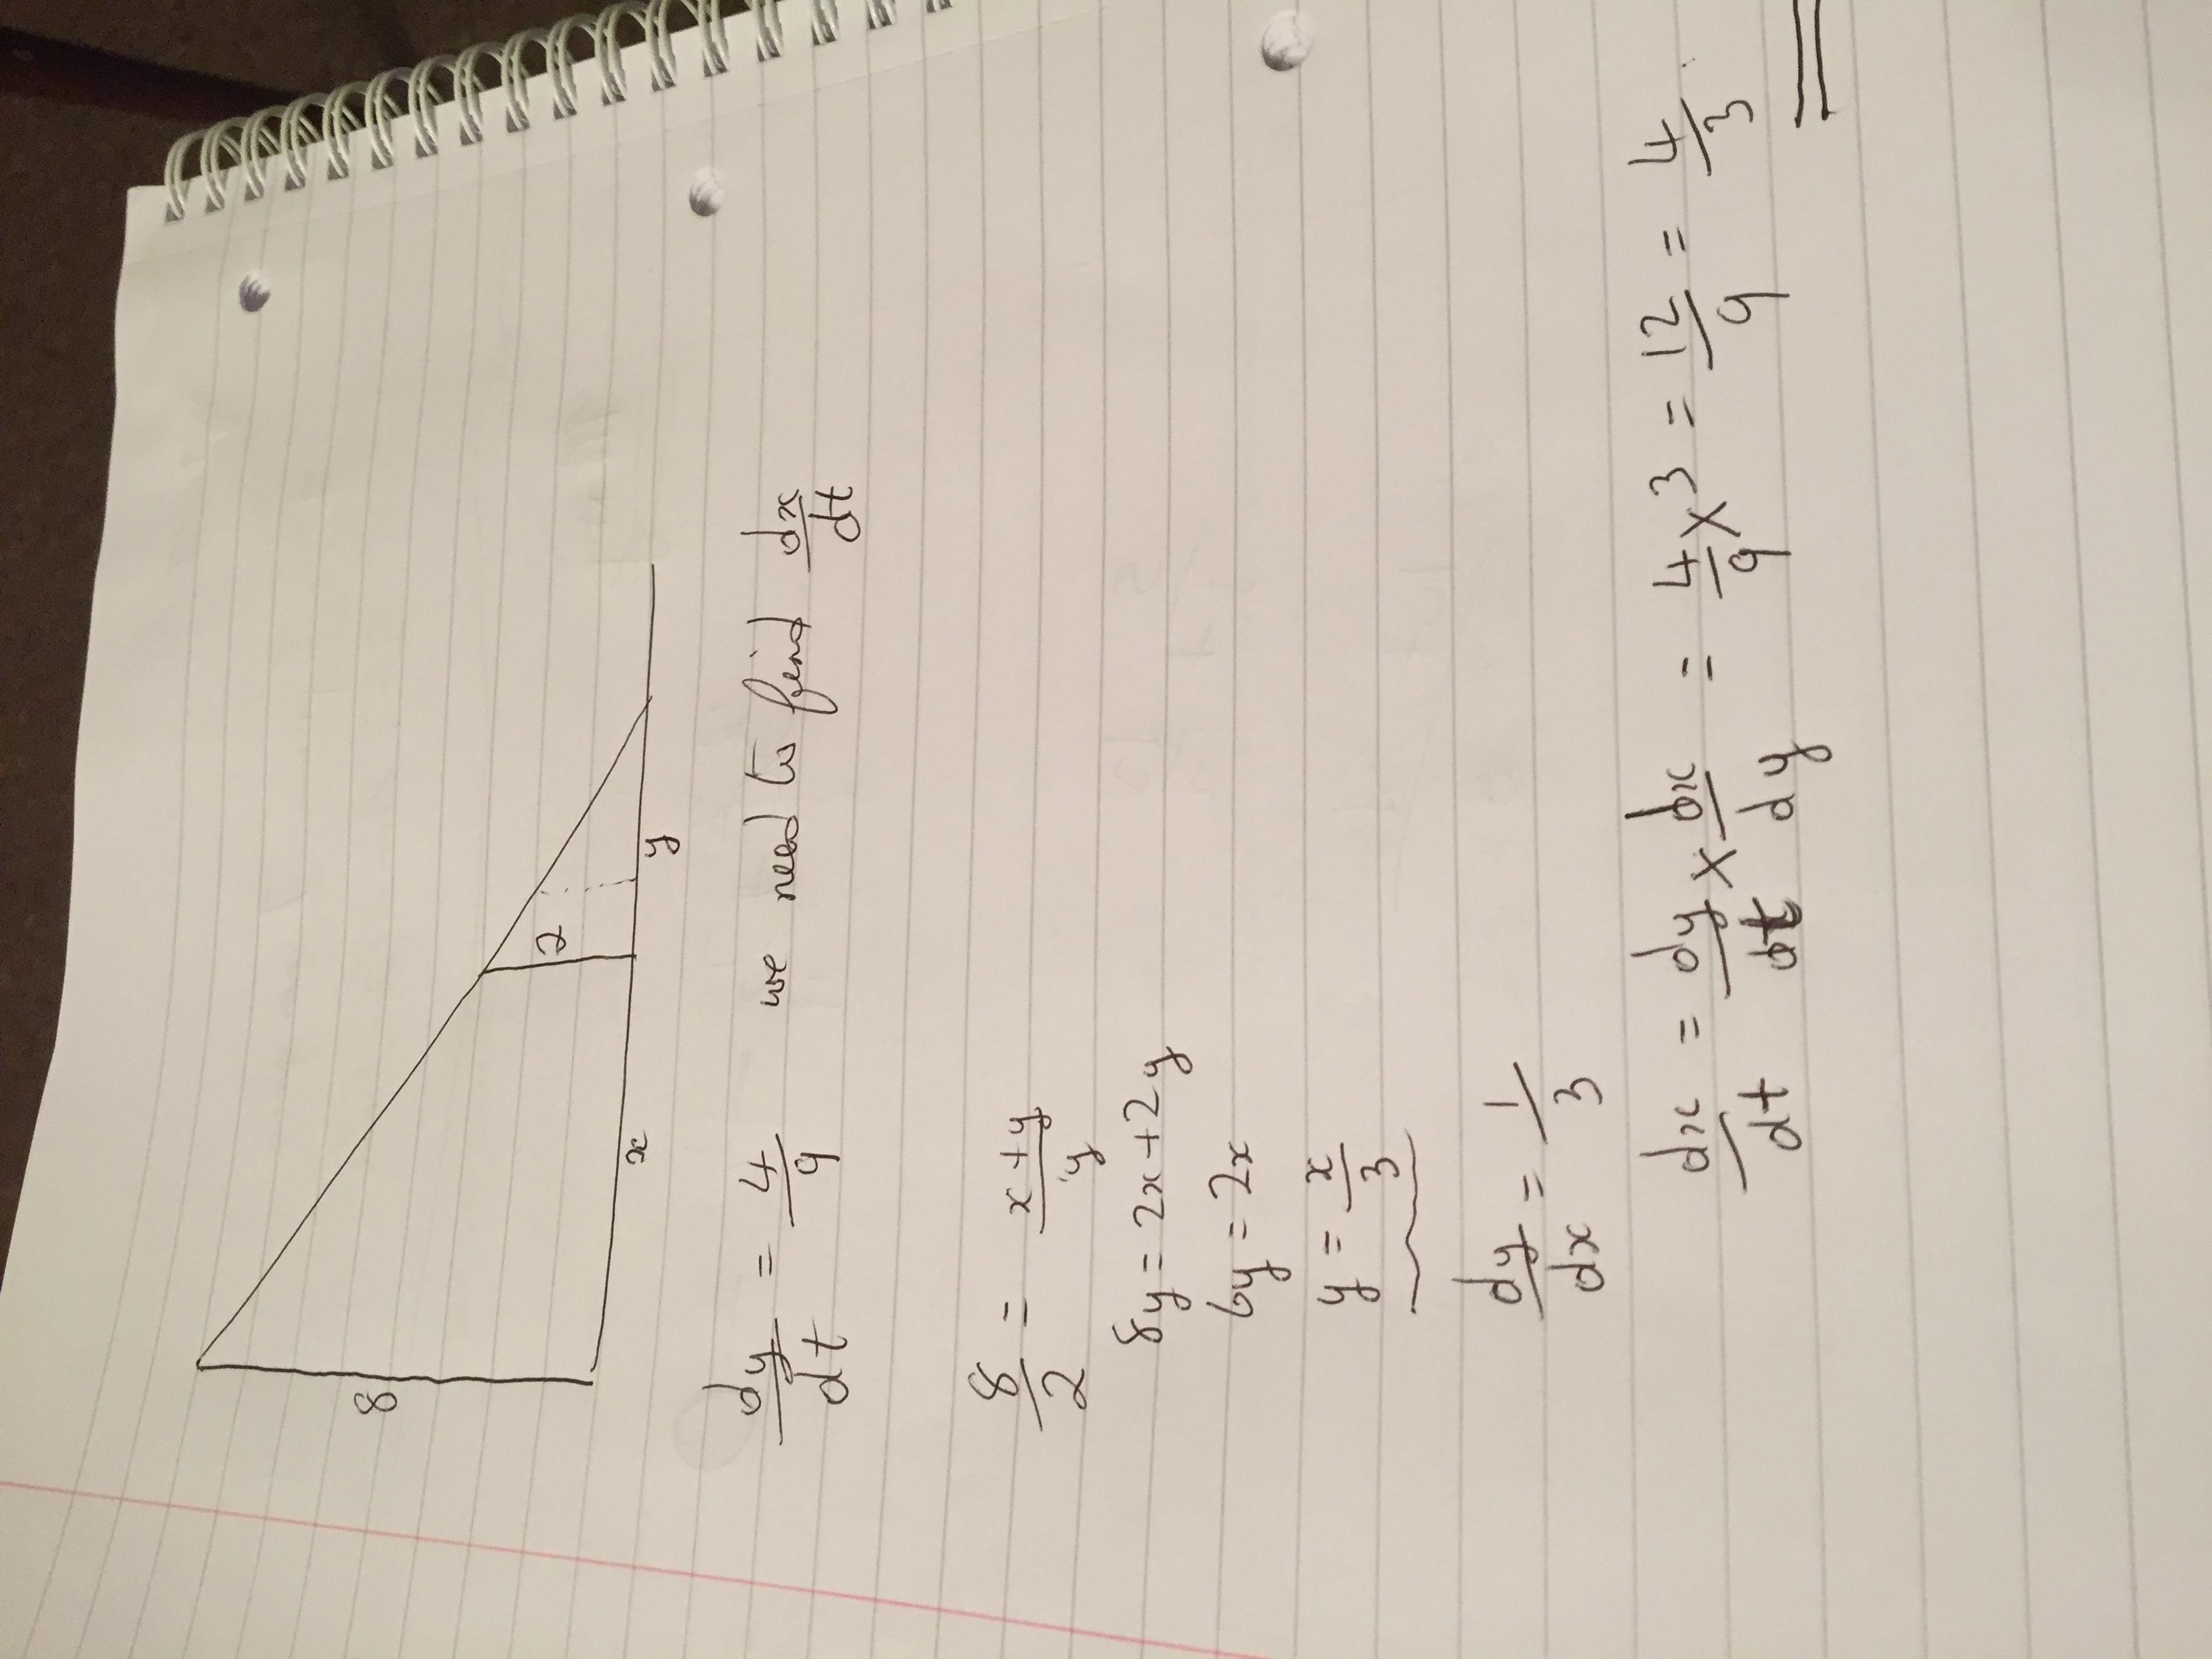 8
2
x
y
dy/dt = 4/9 we need to find dx/dt
8/2 = x+y/y
8y = 2x+2y
6y = 2x
y = x/3
dy/dx = 1/3
dx/dt = dy/dt × dx/dy = 4/9 × 3 = 12/9 = 4/3